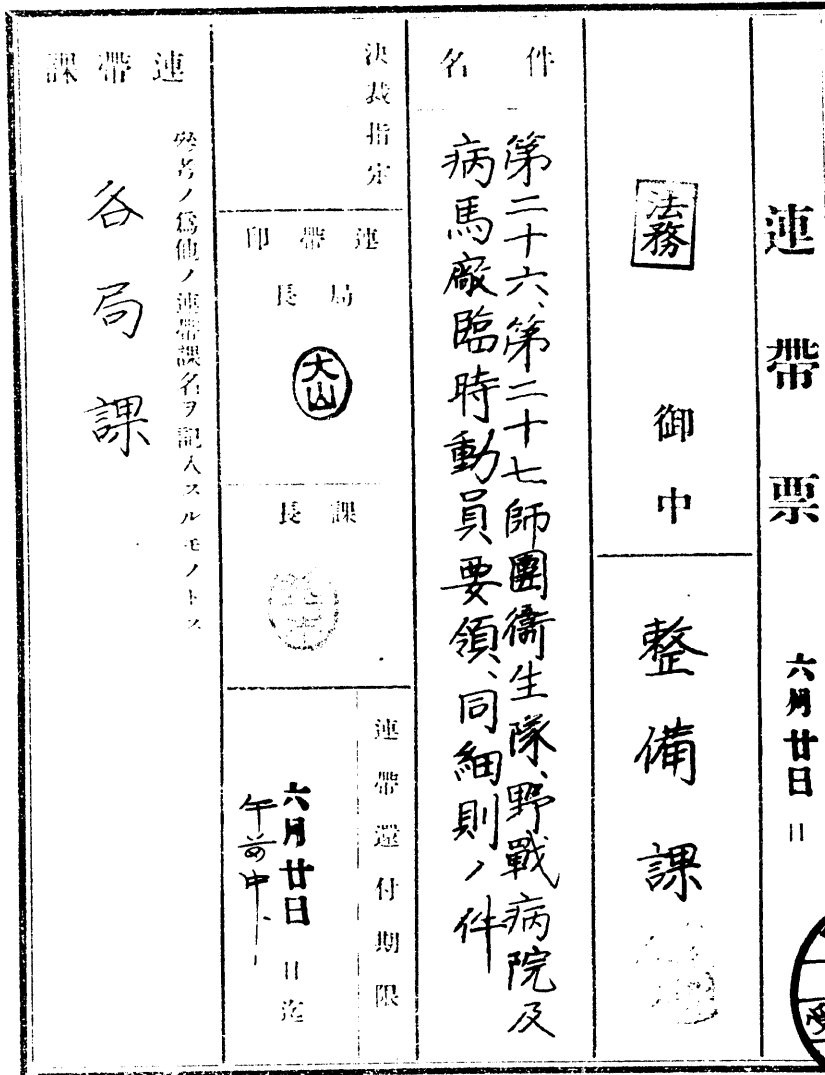 連帶票
六月廿日 日
法務 御中
整備課
件名
第二十六、第二十七師團衞生隊、野戰病院及
病馬廠臨時動員要領、同細則ノ件
決裁指定
連帶印
局長
大山
課長
連帶還付期限
六月廿日 日迄
午前中
連帶課
參考ノ爲他ノ連帶課名ヲ記入スルモノトス
各局課
受